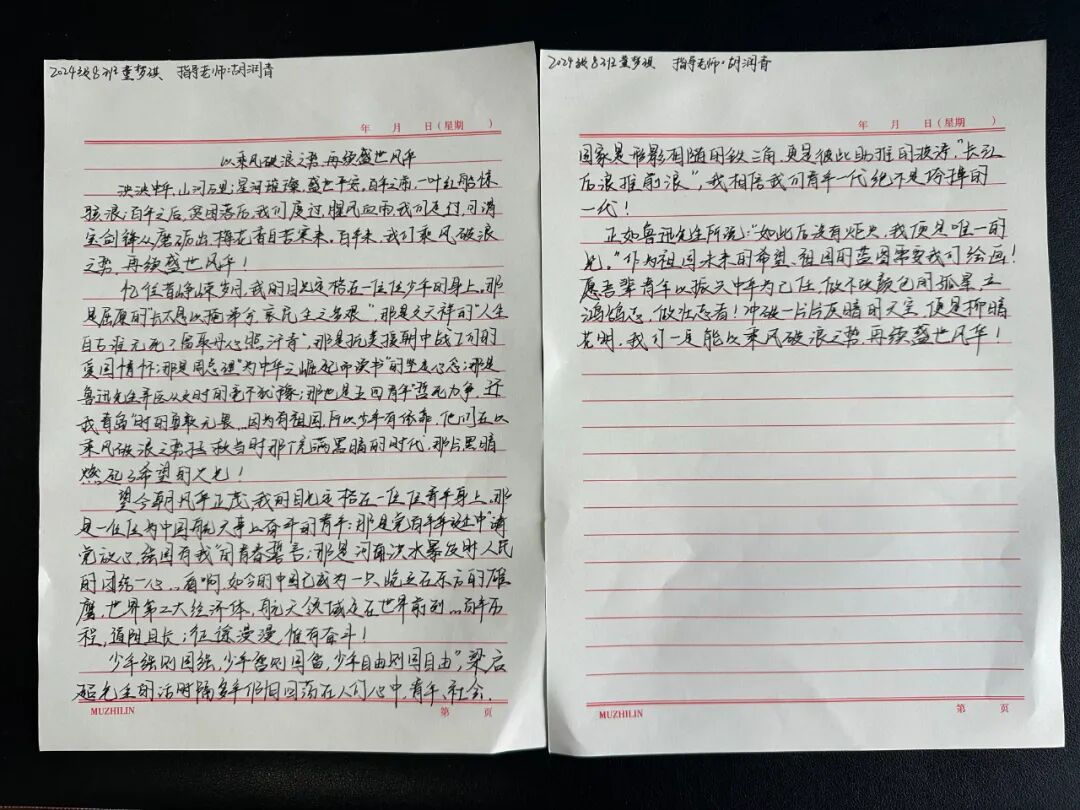 2024级8班董梦琪 指导老师:胡润青
年 月 日(星期 )
以乘风破浪之势,再续盛世风华
泱泱中华,山河万里;星河璀璨,盛世平安,百年之前,一叶红船惊
骇浪;百年之后,贫困落后,我们度过,腥风血雨,我们走过,可谓
宝剑锋从磨砺出,梅花香自苦寒来,百年来,我们乘风破浪
之势,再续盛世风华!
忆往昔峥嵘岁月,我的目光定格在一位位少年的身上,那
是屈原的"长太息以掩涕兮,哀民生之多艰",那是文天祥的"人生
自古谁无死?留取丹心照汗青",那是抗美援朝中战士们的
爱国情怀;那是周恩来"为中华之崛起而读书"的坚定信念;那是
鲁迅先生弃医从文时的毫不犹豫;那也是五四青年"誓死力争,还
我青岛"时的勇敢无畏…因为有祖国,所以少年有依靠,他们在以
乘风破浪之势拯救当时那个充满黑暗的时代,那片黑暗
燃起了希望的火光!
望今朝风华正茂,我的目光定格在一位位青年身上,那
是一位位为中国航天事业奋斗的青年;那是党百年华诞中"请
党放心,强国有我"的青春誓言;那是河南洪水暴发时人民
的团结一心…看啊,如今的中国已成为一只屹立在东方的雄
鹰,世界第二大经济体,航天领域走在世界前列…百年历
程,道阻且长;征途漫漫,惟有奋斗!
少年强则国强,少年智则国智,少年自由则国自由",梁启
超先生的话时隔多年仍旧回荡在人们心中,青年、社会、
MUZHILIN 第 页
2024级8班董梦琪 指导老师:胡润青
年 月 日(星期 )
国家是形影相随的铁三角,更是彼此助推的波涛,"长江
后浪推前浪",我相信我们青年一代绝不是垮掉的
一代!
正如鲁迅先生所说:"如此后没有炬火,我便是唯一的
光。"作为祖国未来的希望、祖国的蓝图需要我们绘画!
愿吾辈青年以振兴中华为己任,做不改颜色的孤星,立
鸿鹄志,做壮志者!冲破一片片灰暗的天空,便是柳暗
花明,我们一定能以乘风破浪之势,再续盛世风华!
MUZHILIN 第 页